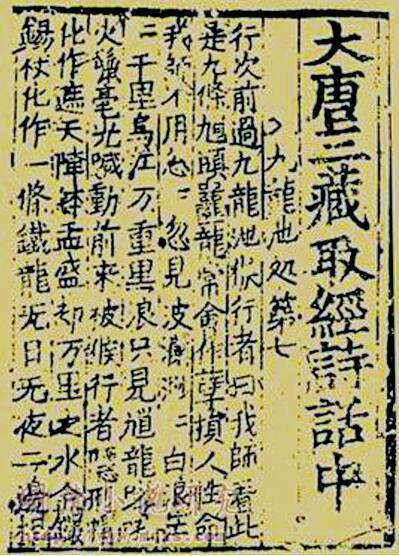 大唐三藏取經詩話中
入九龍池処第七
行次前過九龍池猴行者曰我師看此
是九條馗頭鼉龍常會作孽損人性命
我師不用忩〻忽見波瀾渺〻白浪茫
〻千里烏江万重黑浪只見馗龍哮吼
火鬣毫光喊動前來被猴行者隱形帽
化作遮天陣鉢盂盛却万里之水金鐶
錫杖化作一條鐵龍无日无夜二邊相